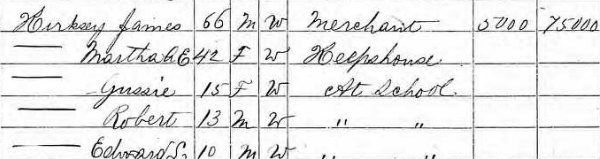 Hirksey James 66 M W Merchant 5000 75000
—— Martha A E 42 F W Keepshouse
—— Gussie 15 F W At School
—— Robert 13 M W " "
—— Edward S. 10 M W " "